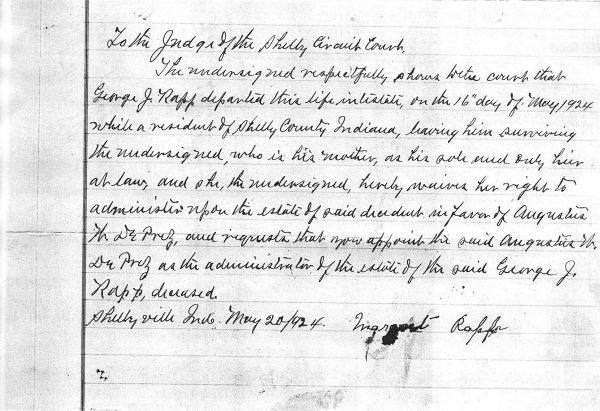 To the Judge of the Shelby Circuit Court,
The undersigned respectfully shows to the court that
George J. Rapp departed this life intestate, on the 16" day of May 1924
while a resident of Shelby County Indiana, leaving him surviving
the undersigned, who is his mother, as his sole and only heir
at law, and she, the undersigned, hereby waives her right to
administer upon the estate of said decedent in favor of Augustus
W. DePrez, and requests that you appoint the said Augustus W.
DePrez as the administrator of the estate of the said George J.
Rapp, deceased.
Shelbyville Ind. May 20/924. Margaret Rapp